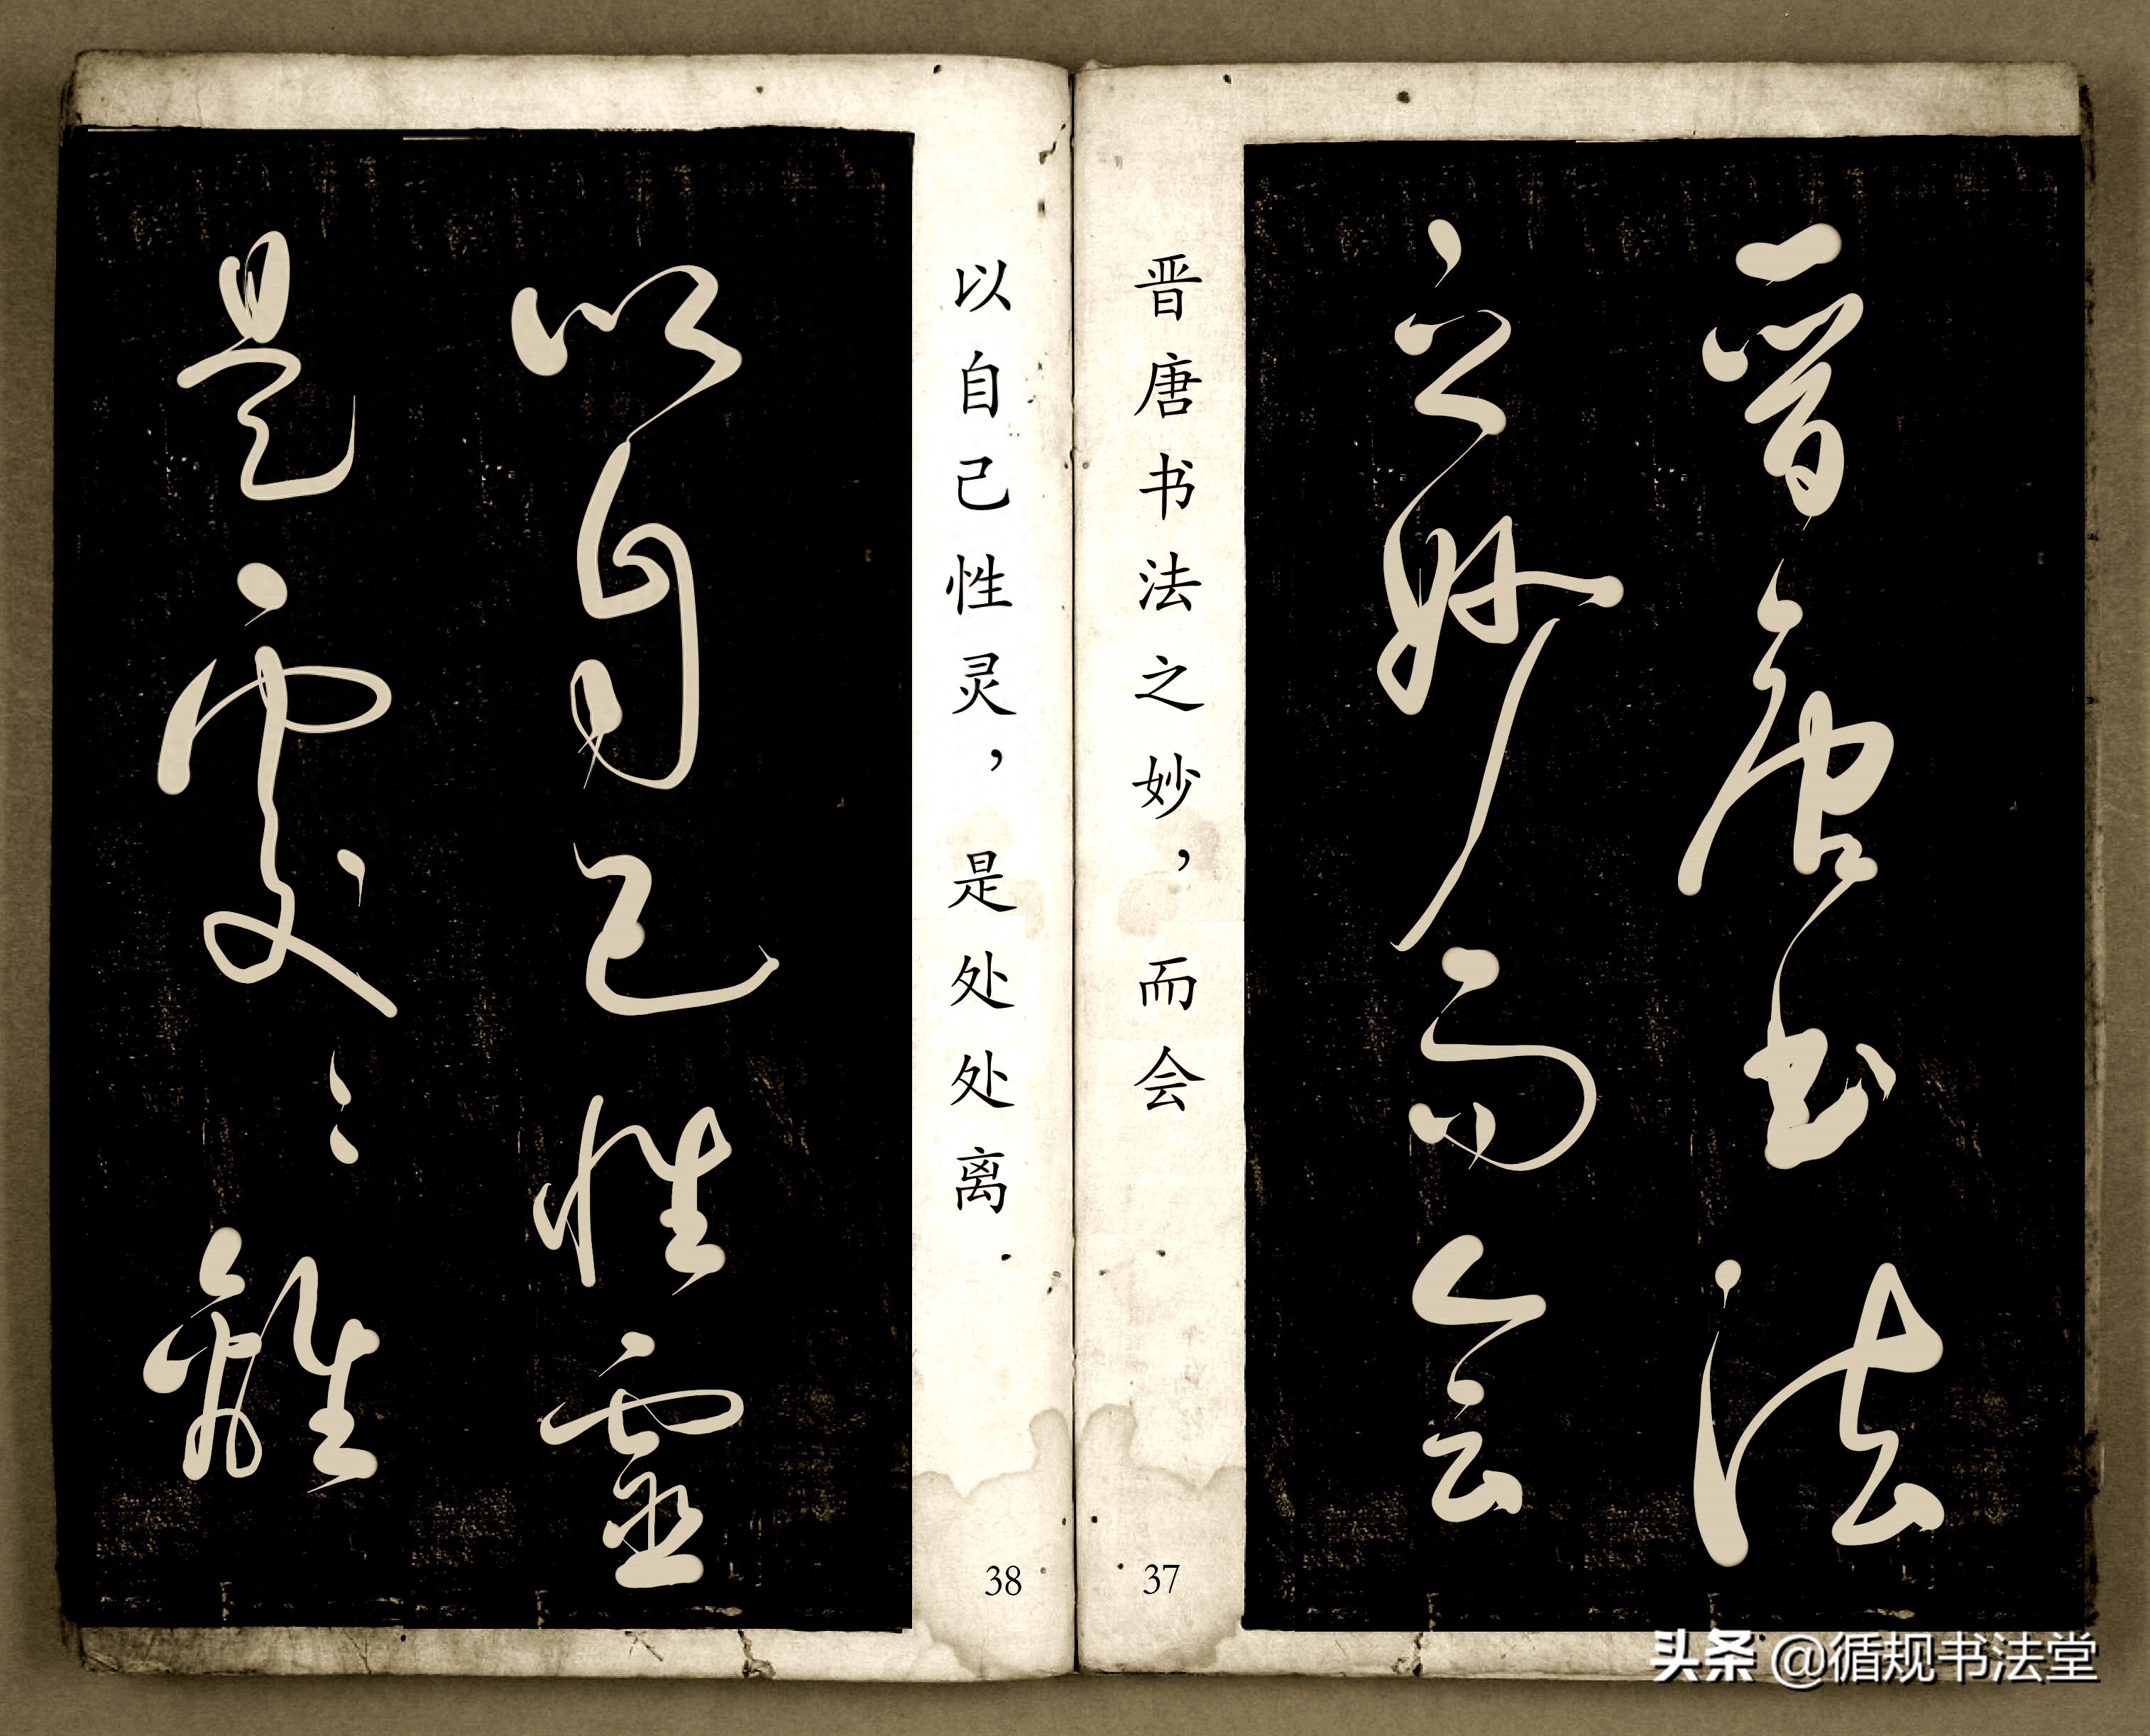 晉唐书法
之妙而会
晋唐书法之妙，而会
37
以自己性靈
是處〻離
以自己性灵，是处处离.
38
头条 @循规书法堂